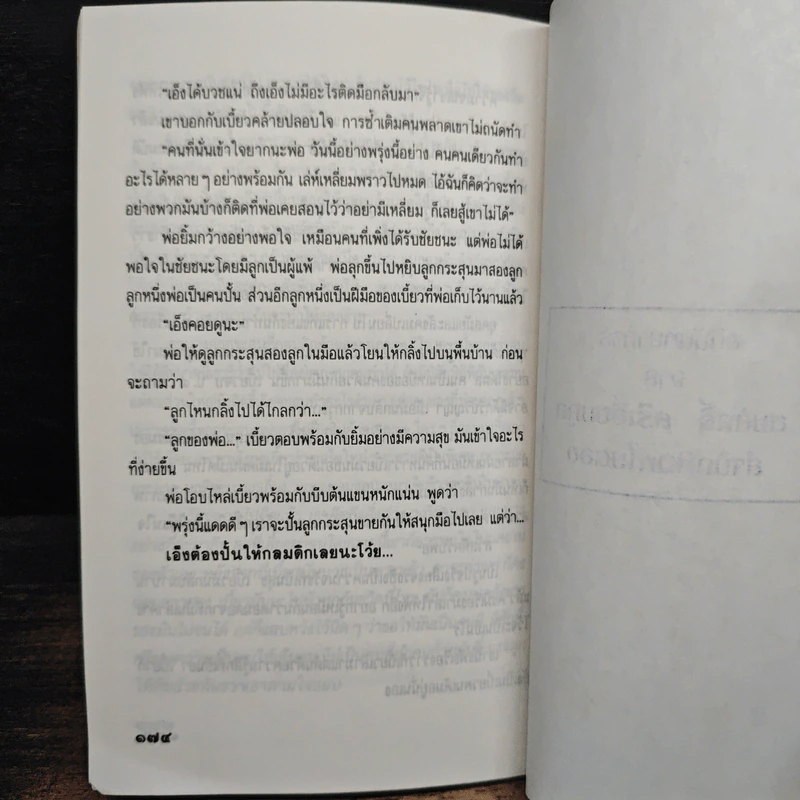 "เอ็งได้บวชแน่ ถึงเอ็งไม่มีอะไรติดมือกลับมา"
เขาบอกกับเบี้ยวคล้ายปลอบใจ การซ้ำเติมคนพลาดเขาไม่ถนัดทำ
"คนที่นั่นเข้าใจยากนะพ่อ วันนี้อย่างพรุ่งนี้อย่าง คนคนเดียวกันทำ
อะไรได้หลายๆ อย่างพร้อมกัน เล่ห์เหลี่ยมพราวไปหมด ไอ้ฉันก็คิดว่าจะทำ
อย่างพวกมันบ้างก็ติดที่พ่อเคยสอนไว้ว่าอย่ามีเหลี่ยม ก็เลยสู้เขาไม่ได้"
พ่อยิ้มกว้างอย่างพอใจ เหมือนคนที่เพิ่งได้รับชัยชนะ แต่พ่อไม่ได้
พอใจในชัยชนะโดยมีลูกเป็นผู้แพ้ พ่อลุกขึ้นไปหยิบลูกกระสุนมาสองลูก
ลูกหนึ่งพ่อเป็นคนปั้น ส่วนอีกลูกหนึ่งเป็นฝีมือของเบี้ยวที่พ่อเก็บไว้นานแล้ว
"เอ็งคอยดูนะ"
พ่อให้ดูลูกกระสุนสองลูกในมือแล้วโยนให้กลิ้งไปบนพื้นบ้าน ก่อน
จะถามว่า
"ลูกไหนกลิ้งไปได้ไกลกว่า..."
"ลูกของพ่อ..." เบี้ยวตอบพร้อมกับยิ้มอย่างมีความสุข มันเข้าใจอะไร
ที่ง่ายขึ้น
พ่อโอบไหล่เบี้ยวพร้อมกับบีบต้นแขนหนักแน่น พูดว่า
"พรุ่งนี้แดดดีๆ เราจะปั้นลูกกระสุนขายกันให้สนุกมือไปเลย แต่ว่า...
เอ็งต้องปั้นให้กลมดิกเลยนะโว้ย...
๑๗๔